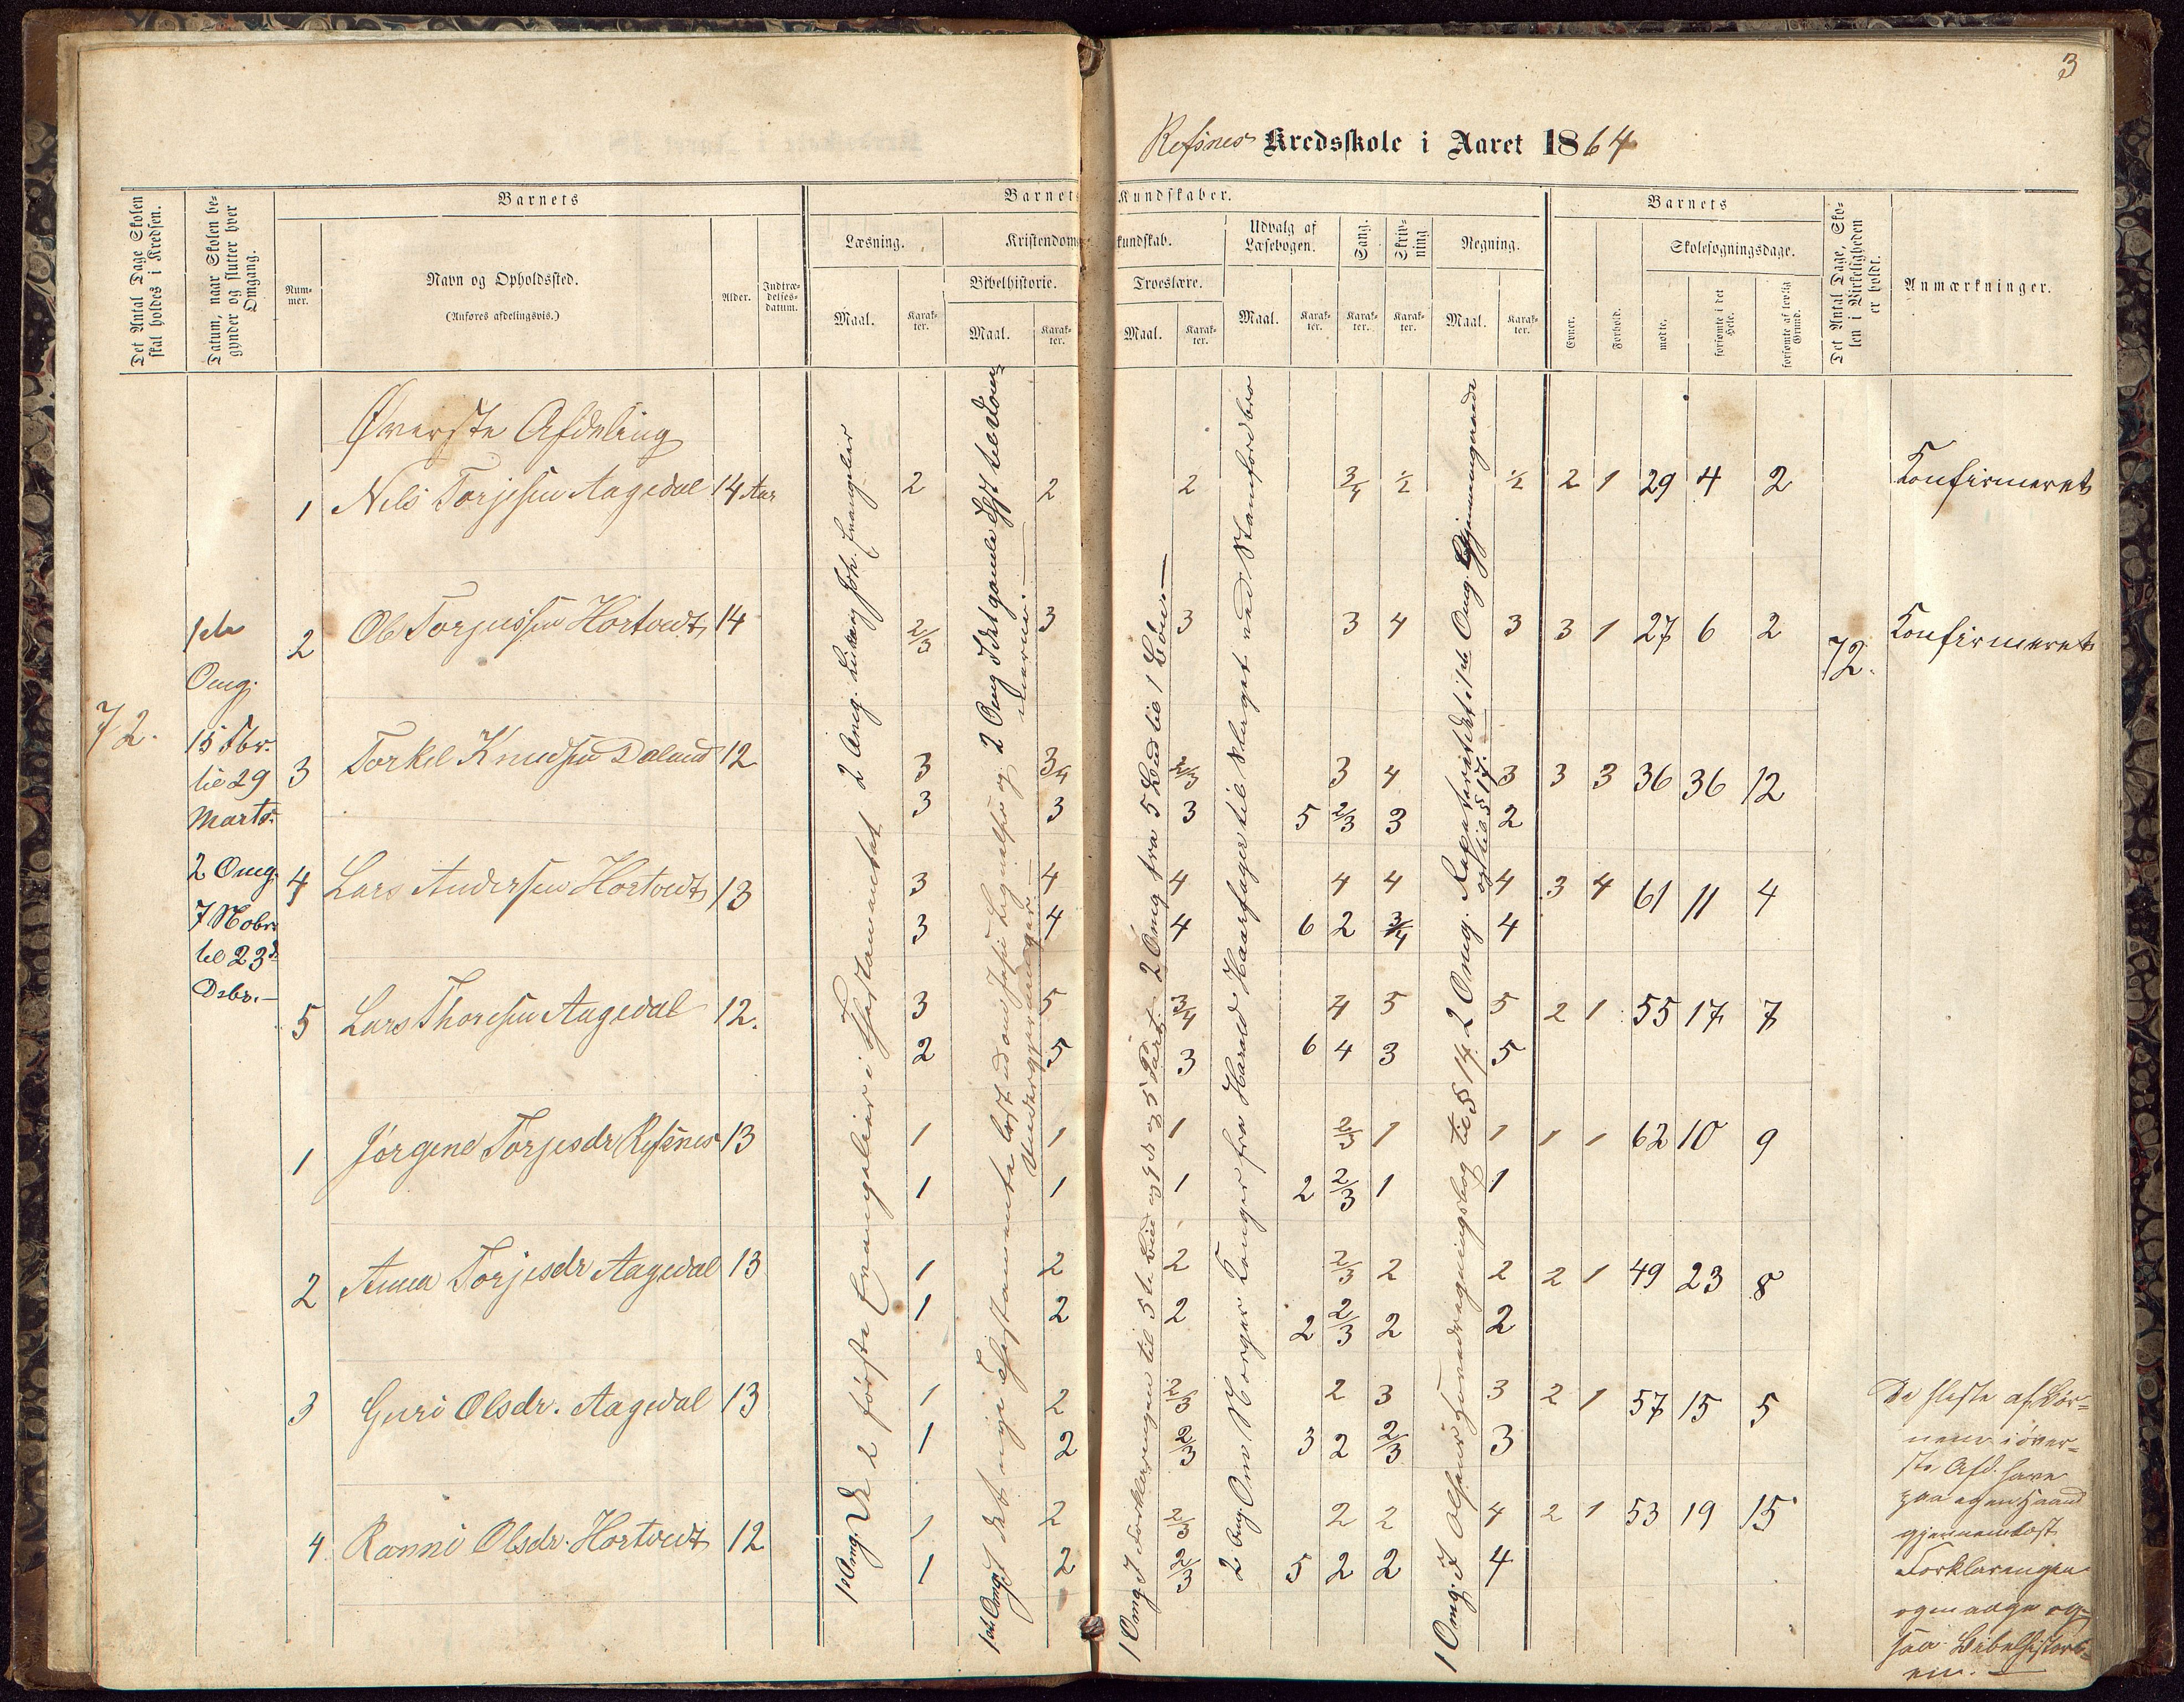 3
Refsnes Kredsskole i Aaret 1864
Det Antal Dage Skolen skal holdes i Kredsen.
Datum, naar Skolen begynder og slutter hver Omgang.
Barnets
Nummer.
Navn og Opholdssted.
(Anføres afdelingsvis.)
Alder.
Indtrædelsesdatum.
Barnets Kundskaber.
Læsning.
Maal.
Karakter.
Kristendomskundskab.
Bibelhistorie.
Maal.
Karakter.
Troeslære.
Maal.
Karakter.
Udvalg af Læsebogen.
Maal.
Karakter.
Sang.
Karakter.
Skrivning
Karakter.
Regning.
Maal.
Karakter.
Barnets
Evner.
Forhold.
Skolesøgningsdage.
mødte.
forsømte i det Hele.
forsømte af lovlig Grund.
Det Antal Dage, Skolen i Virkeligheden er holdt.
Anmærkninger.
Øverste Afdeling
1 Nils Torjesen Aagedal 14 Aar 2 2 2 3/4 1/2 1/2 2 1 29 4 2 Konfirmeret
2 Ole Torjussen Hortvedt 14 2/3 3 3 3 4 3 3 1 27 6 2 Konfirmeret
3 Torkel Knudsen Dalend 12 3 3/4 2/3 3 4 3 3 3 36 36 12
3 3 3 5 2/3 3 2
4 Lars Andersen Hortvedt 13 3 4 4 4 4 4 3 4 61 11 4
3 4 4 6 2 3/4 4
5 Lars Thoresen Aagedal 12. 3 5 3/4 4 5 5 2 1 55 17 7
2 5 3 6 4 3 5
1 Jørgine Torjesdr Refsnes 13 1 1 1 2/3 1 1 1 1 62 10 9
1 1 1 2 2/3 1 1
2 Anna Torjesdr Aagedal 13 1 2 2 2/3 2 2 2 1 49 23 8
1 2 2 2 2/3 2 2
3 Guri Olsdr. Aagedal 13 1 2 2/3 2 3 3 2 1 57 15 5
1 2 2/3 3 2 2/3 3
4. Ranni Olsdr. Hortvedt 12 1 2 2/3 2 2 4 2 1 53 19 15
1 2 2/3 5 2 2 4
72.
1ste
Omg.
15 Fbr.
til 29
Marts.
2 Omg.
7 Nobr.
til 23d
Debr.
1 Omg. De 2 første Evangelier i Ny Testamentet 2 Omg. Lukas og Joh. Evangelier
1ste Omg. I det nye Testamente
2 Omg I det gamle Test til Dommerne.
1 Omg I Forklaringen til 5te Bud og 4de og 5 Part. 2 Omg fra 5 Bud til 1 Bøn.
2 Omg Om Norges Konger fra Harald Haarfager til Slaget ved Stamfordbro
1 Omg. I Olsens Hovedregningsbog til § 14. 2 Omg. Repeteredes det i 1ste Omg. Gjennemgaaede og til § 17.
72.
De fleste af Bør-
nene i øver-
ste Afd. have
paa egen Haand
gjennemlæst
Forklaringen
og mange og-
saa Bibelhistori-
en.